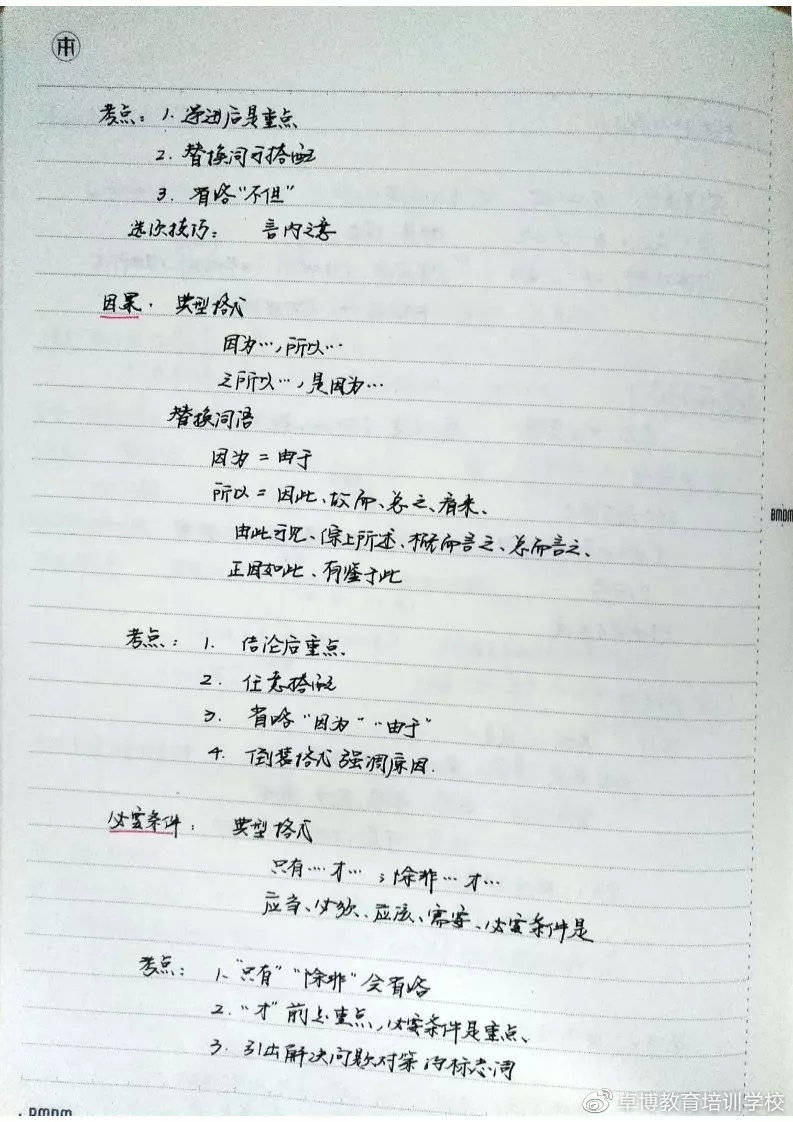 考点：1. 递进后是重点
2. 替换词可搭配
3. 省略“不但”
选项技巧： 言内之意
因果. 典型格式
因为…，所以…
之所以…，是因为…
替换词语
因为 = 由于
所以 = 因此、故而、总之、看来、
由此可见、综上所述、概而言之、总而言之、
正因如此、有鉴于此
考点： 1. 结论后重点.
2. 任意搭配
3. 省略“因为”“由于”
4. 倒装格式 强调原因.
必要条件： 典型格式
只有…才…；除非…才…
应当、必须、应该、需要、必要条件是
考点： 1、“只有”“除非”会省略
2.“才”前是重点，必要条件是重点、
3. 引出解决问题对策的标志词
BMDM
BMDM
卓博教育培训学校